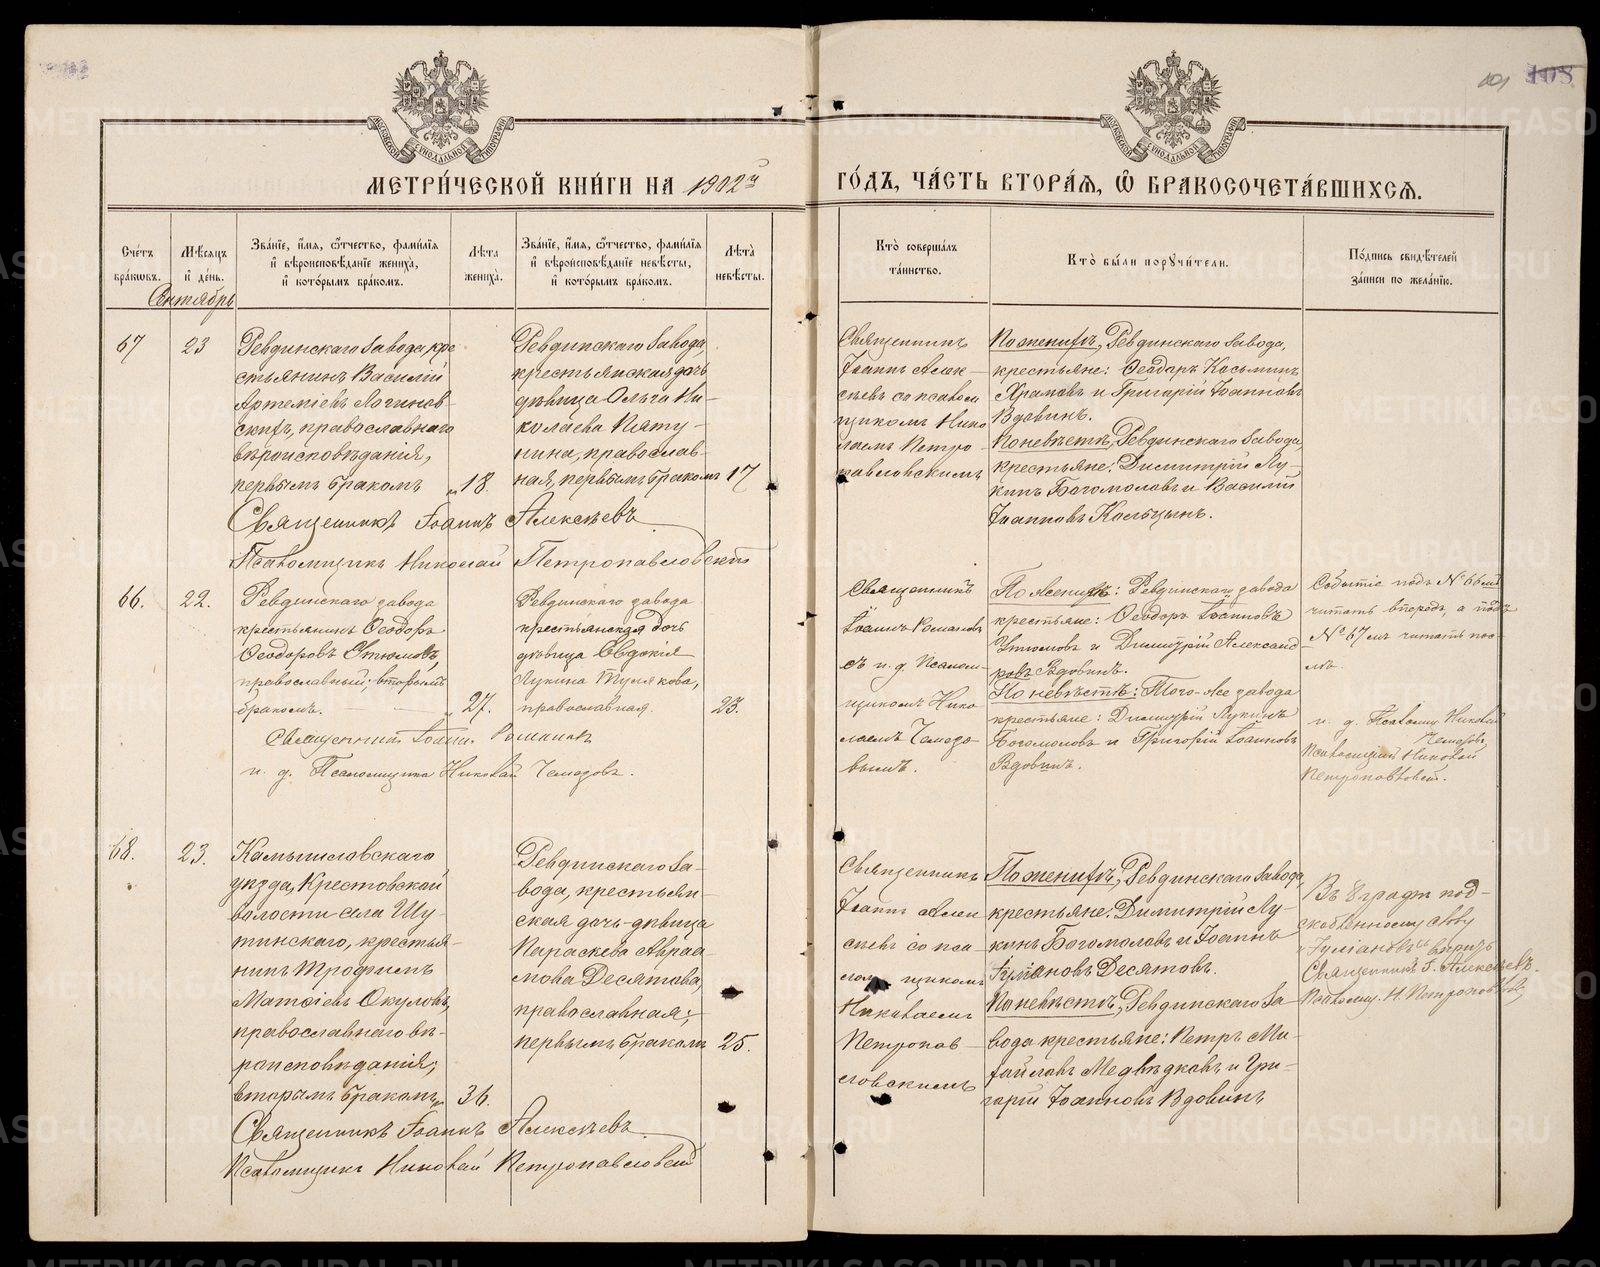 МЕТРИ́ЧЕСКОЙ КНИ́ГИ НА 1902й
ГО́ДЪ, ЧА́СТЬ ВТОРА́Я, Ѽ БРАКОСОЧЕТА́ВШИХСЯ.
101 108
Сче́тъ бра́ковъ.
Мѣ́сяцъ и҆ де́нь.
Зва́нїе, и҆́мя, ѻ҆́тчество, фами́лїя и҆ вѣроисповѣ́данїе жениха̀, и҆ кото́рымъ бра́комъ.
Лѣ́та жениха̀.
Зва́нїе, и҆́мя, ѻ҆́тчество, фами́лїя и҆ вѣроисповѣ́данїе невѣ́сты, и҆ кото́рымъ бра́комъ.
Лѣ́та невѣ́сты.
Кто̀ соверша́лъ та́инство.
Кто̀ бы́ли порꙋчи́тели.
По́дпись свидѣ́телей за́писи по жела́нїю.
Сентябрь
67
23
Ревдинскаго завода, кре
стьянинъ Василій
Артеміевъ Логинов-
скихъ, православнаго
вѣроисповѣданія,
первымъ бракомъ
18.
Ревдинскаго завода,
крестьянская дочь
дѣвица Ольга Ни-
колаева Пяту-
нина, православ-
ная, первымъ бракомъ
17
Священникъ
Іоаннъ Алек-
сѣевъ съ псалом
щикомъ Нико
лаемъ Петро-
павловскимъ
По женихѣ, Ревдинскаго завода,
крестьяне: Ѳеодоръ Косьминъ
Храмовъ и Григорій Іоанновъ
Вдовинъ.
По невѣстѣ, Ревдинскаго завода,
крестьяне: Димитрій Лу-
кинъ Богомоловъ и Василій
Іоанновъ Кольцынъ.
Священникъ Іоаннъ Алексѣевъ
Псаломщикъ Николай Петропавловскій
66.
22.
Ревдинскаго завода
крестьянинъ Ѳеодоръ
Ѳеодоровъ Утюмовъ,
православный; вторымъ
бракомъ.
27.
Ревдинскаго завода
крестьянская дочь
дѣвица Евдокія
Лукина Тулякова,
православная.
23.
Священникъ
Іоаннъ Романовъ
съ и. д. Псалом-
щикомъ Нико
лаемъ Чемодо-
вымъ.
По женихѣ: Ревдинскаго завода
крестьяне: Ѳеодоръ Іоанновъ
Утюмовъ и Димитрій Александ-
ровъ Вдовинъ.
По невѣстѣ: Того-же завода
крестьяне: Димитрій Лукинъ
Богомоловъ и Григорій Іоанновъ
Вдовинъ.
Событіе подъ № 66мъ
читать впередъ, а подъ
№ 67мъ читать пос-
лѣ.
и. д. Псаломщ. Николай
Чемодовъ
Псаломщикъ Николай
Петропавловскій.
Священникъ Іоаннъ Романовъ
и. д. Псаломщика Николай Чемодовъ.
68.
23.
Камышловскаго
уѣзда, Крестовской
волости села Шу-
тинскаго, крестья-
нинъ Трофимъ
Матѳіевъ Окуловъ,
православнаго вѣ-
роисповѣданія;
вторымъ бракомъ
36.
Ревдинскаго за-
вода, крестьян-
ская дочь-дѣвица
Параскева Авраа-
мова Десятова,
православная;
первымъ бракомъ
25.
Священникъ
Іоаннъ Алек
сѣевъ со пса-
лом щикомъ
Николаемъ
Петропав-
ловскимъ
По женихѣ, Ревдинскаго завода,
крестьяне: Димитрій Лу-
кинъ Богомоловъ и Іоаннъ
Гуліановъ Десятовъ.
По невѣстѣ, Ревдинскаго за-
вода крестьяне: Петръ Ми-
хайловъ Медвѣдковъ и Гри-
горій Іоанновъ Вдовинъ
Въ 8 графѣ под-
скобленному слову
„Гуліановъ“ вѣрить
Священникъ І. Алексѣевъ.
Псаломщ. Н. Петропавловскій
Священникъ Іоаннъ Алексѣевъ.
Псаломщикъ Николай Петропавловскій